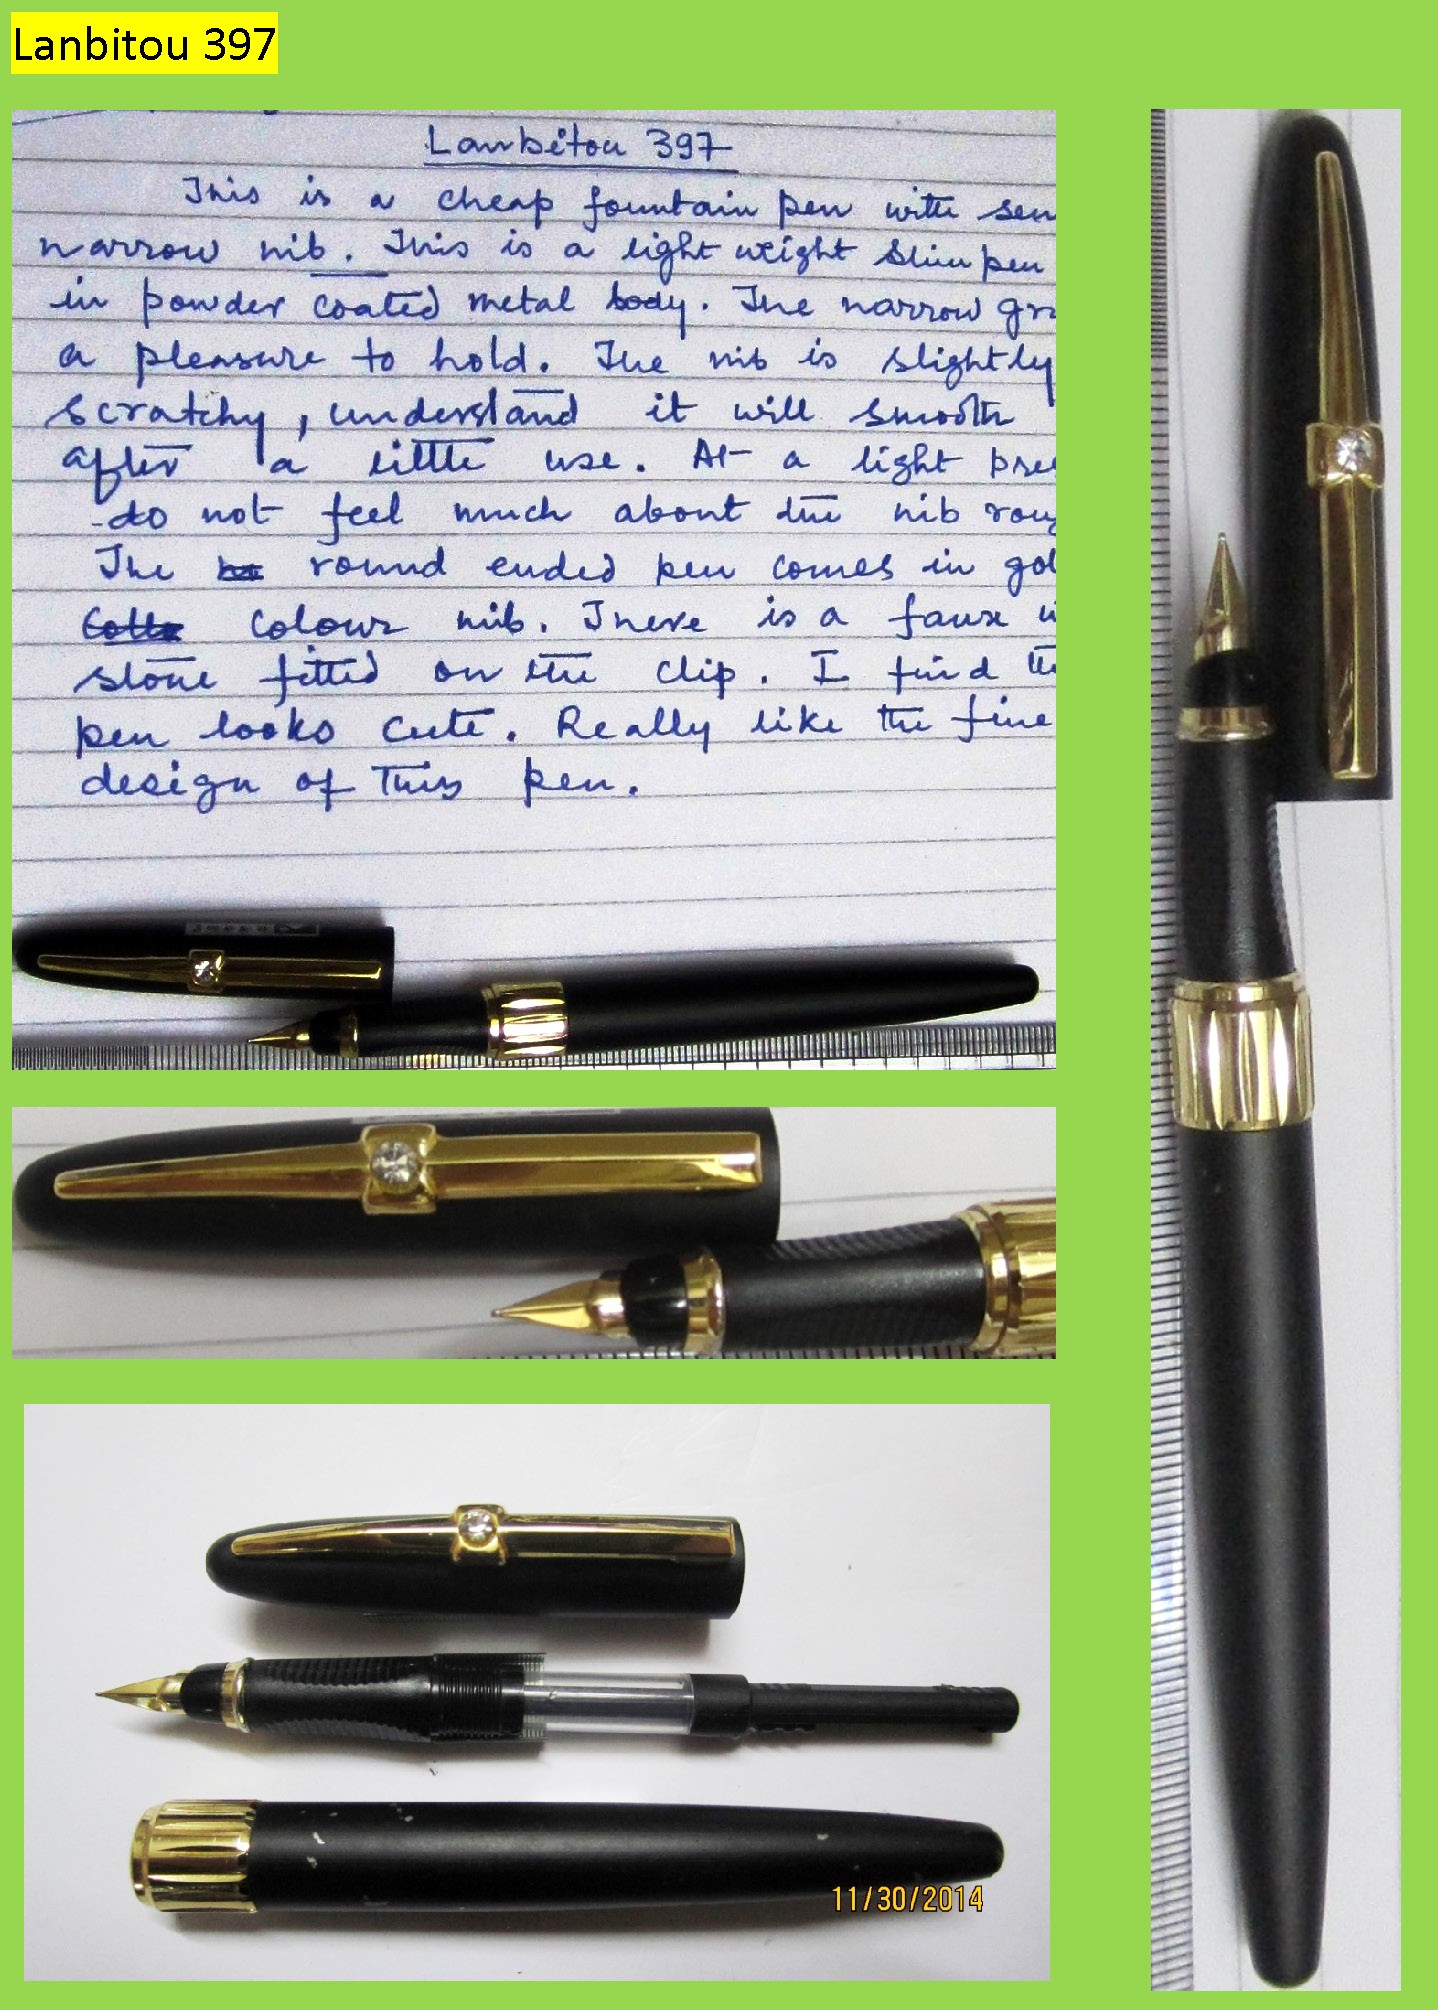 Lanbitou 397
Lanbitou 397
This is a cheap fountain pen with
narrow nib. This is a light weight slim pen
in powder coated metal body. The narrow
a pleasure to hold. The nib is slightly
scratchy, understand it will smooth
after a little use. At a light
do not feel much about the nib
The round ended pen comes in
colour nib. There is a faux
stone fitted on the clip. I find
pen looks cute. Really like the fine
design of this pen.
11/30/2014